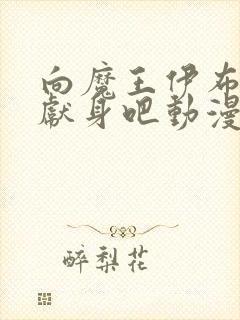 向魔王伊布
獻身吧動漫
醉梨花